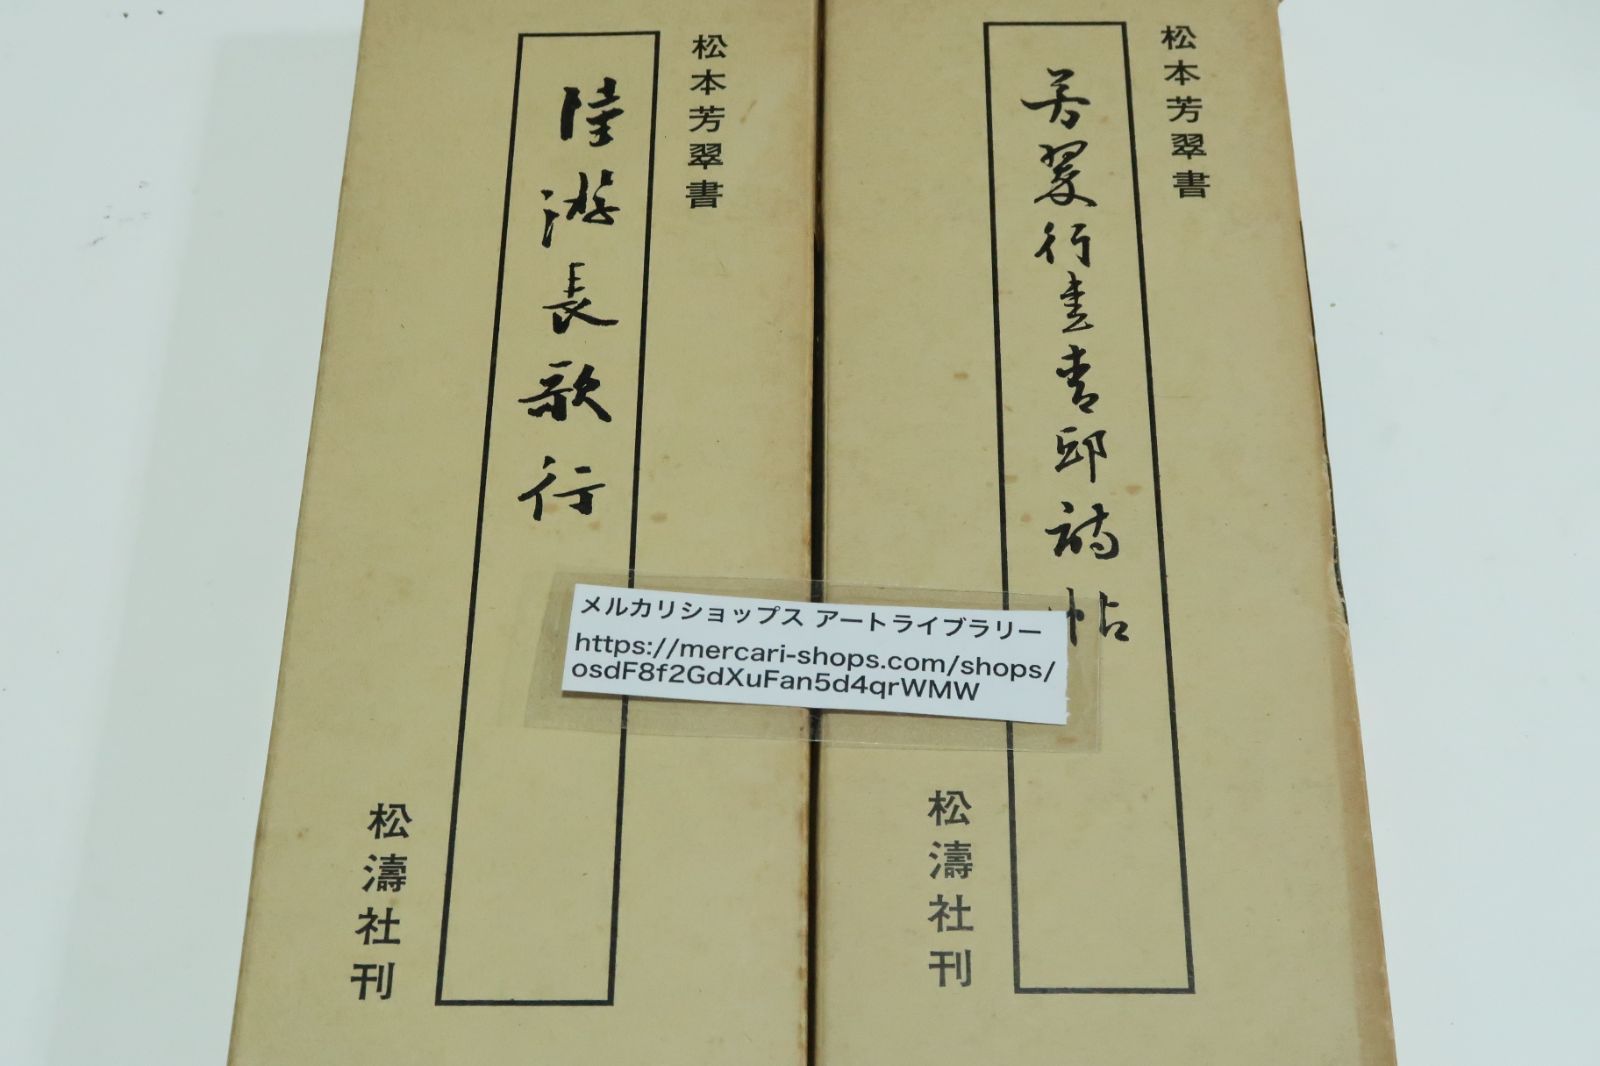 松本芳翠書
芳翠行書青邱詩帖
松濤社刊
松本芳翠書
陸游長歌行
松濤社刊
メルカリショップス アートライブラリー
https://mercari-shops.com/shops/
osdF8f2GdXuFan5d4qrWMW